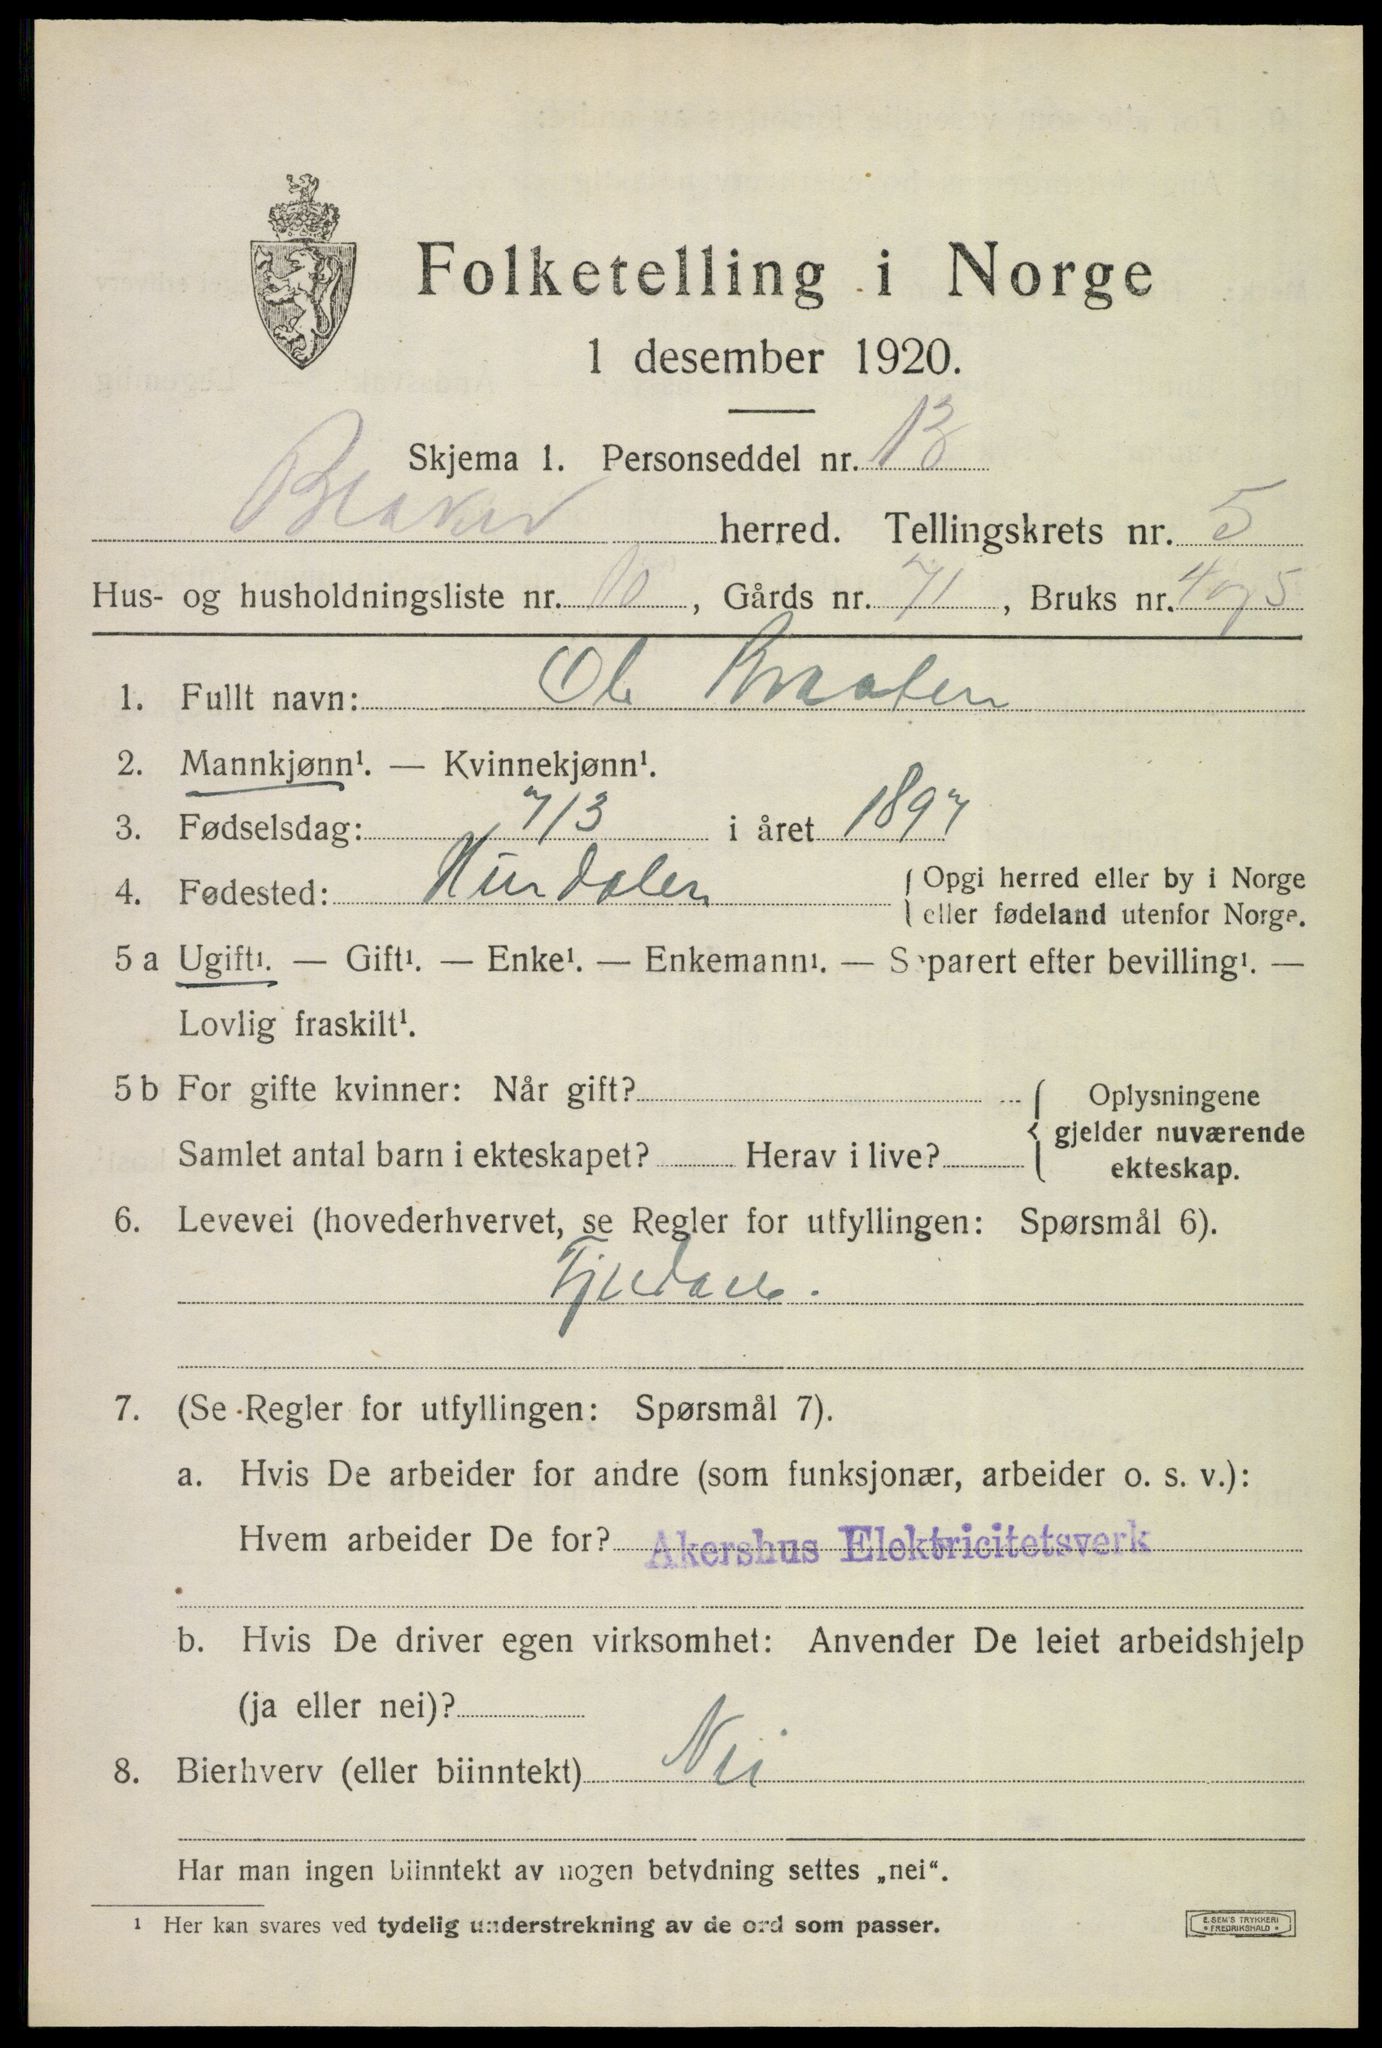 Folketelling i Norge
1 desember 1920.
Skjema 1. Personseddel nr. 13
Blaker herred. Tellingskrets nr. 5
Hus- og husholdningsliste nr. 10, Gårds nr. 71, Bruks nr. 4 og 5
1. Fullt navn: Ole Braaten
2. Mannkjønn¹. — Kvinnekjønn¹.
3. Fødselsdag: 7/3 i året 1897
4. Fødested: Hurdalen { Opgi herred eller by i Norge
eller fødeland utenfor Norge.
5 a Ugift¹. — Gift¹. — Enke¹. — Enkemann¹. — Separert efter bevilling¹. —
Lovlig fraskilt¹.
5 b For gifte kvinner: Når gift? { Oplysningene
gjelder nuværende
Samlet antal barn i ekteskapet? Herav i live? ekteskap.
6. Levevei (hovederhvervet, se Regler for utfyllingen: Spørsmål 6).
7. (Se Regler for utfyllingen: Spørsmål 7).
a. Hvis De arbeider for andre (som funksjonær, arbeider o. s. v.):
Hvem arbeider De for? Akershus Elektricitetsverk
b. Hvis De driver egen virksomhet: Anvender De leiet arbeidshjelp
(ja eller nei)?
8. Bierhverv (eller biinntekt) Nei
Har man ingen biinntekt av nogen betydning settes „nei“.
¹ Her kan svares ved tydelig understrekning av de ord som passer.
E. SEM'S TRYKKERI
• FREDRIKSHALD •